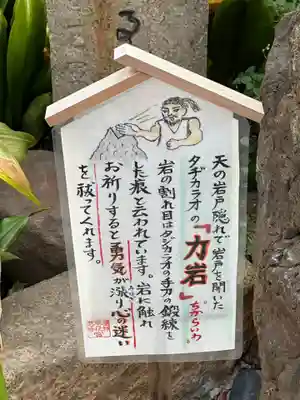 天の岩戸隠れで岩戸を開いた
タヂカラオの「力岩」
ちからいわ
岩の割れ目はタジカラオの手刀の鍛練を
した痕と云われています。岩に触れ
お祈りすると勇気が漲り心の迷い
を祓ってくれます。
る